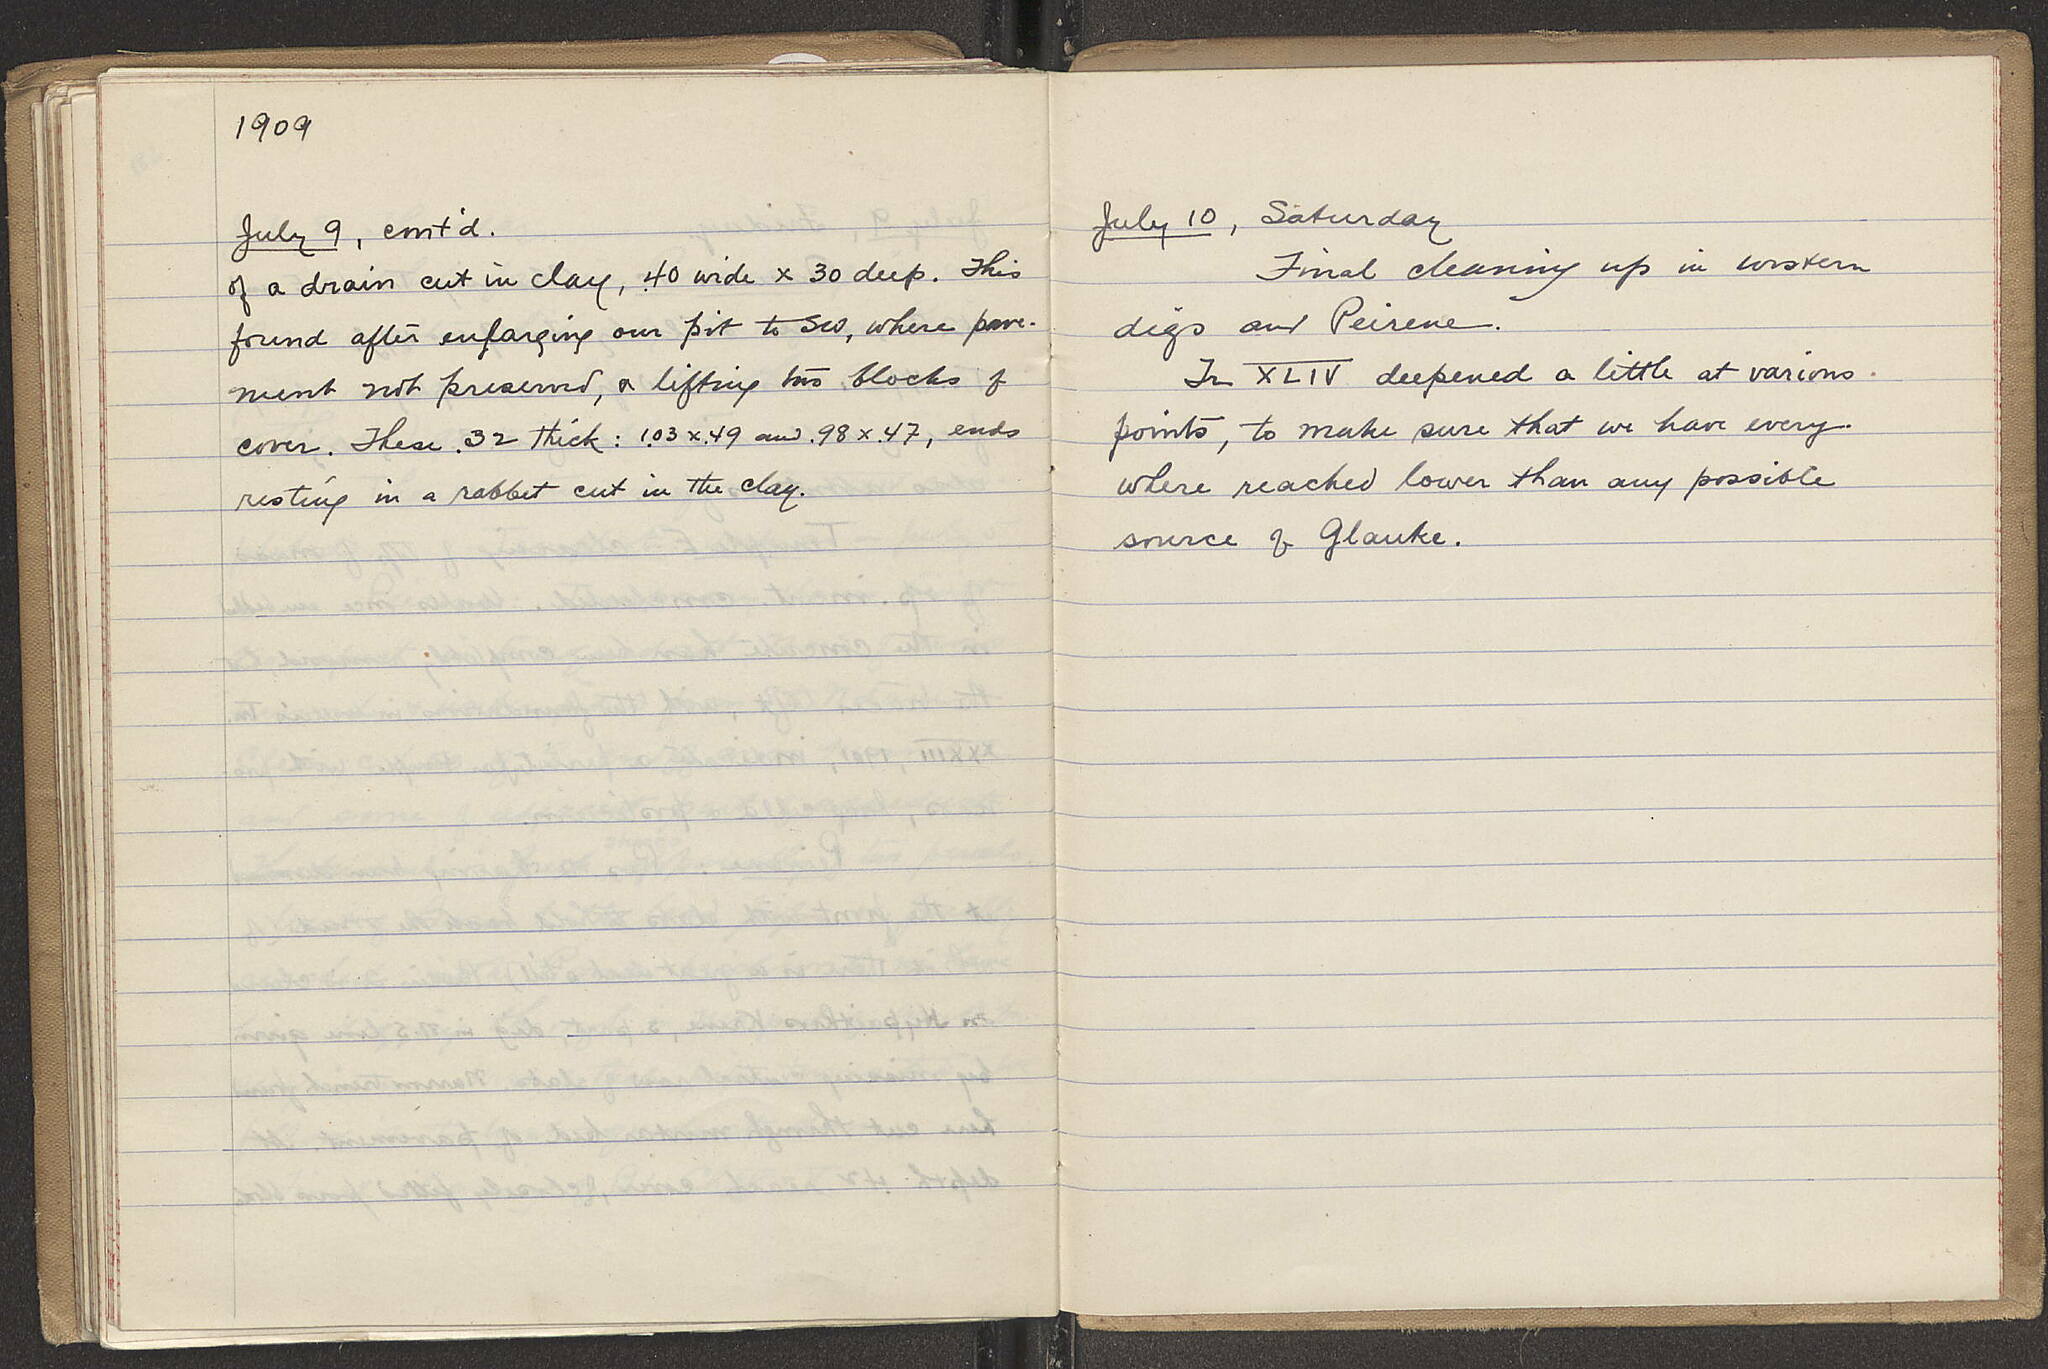 1909
July 9, cont'd.
of a drain cut in clay, .40 wide x 30 deep. This
found after enlarging our pit to SW, where pave-
ment not preserved, & lifting two blocks of
cover. These .32 thick: 1.03 x .49 and .98 x .47, ends
resting in a rabbet cut in the clay.
July 10, Saturday
Final cleaning up in western
digs and Peirene.
In XLIV deepened a little at various
points, to make sure that we have every-
where reached lower than any possible
source of Glauke.